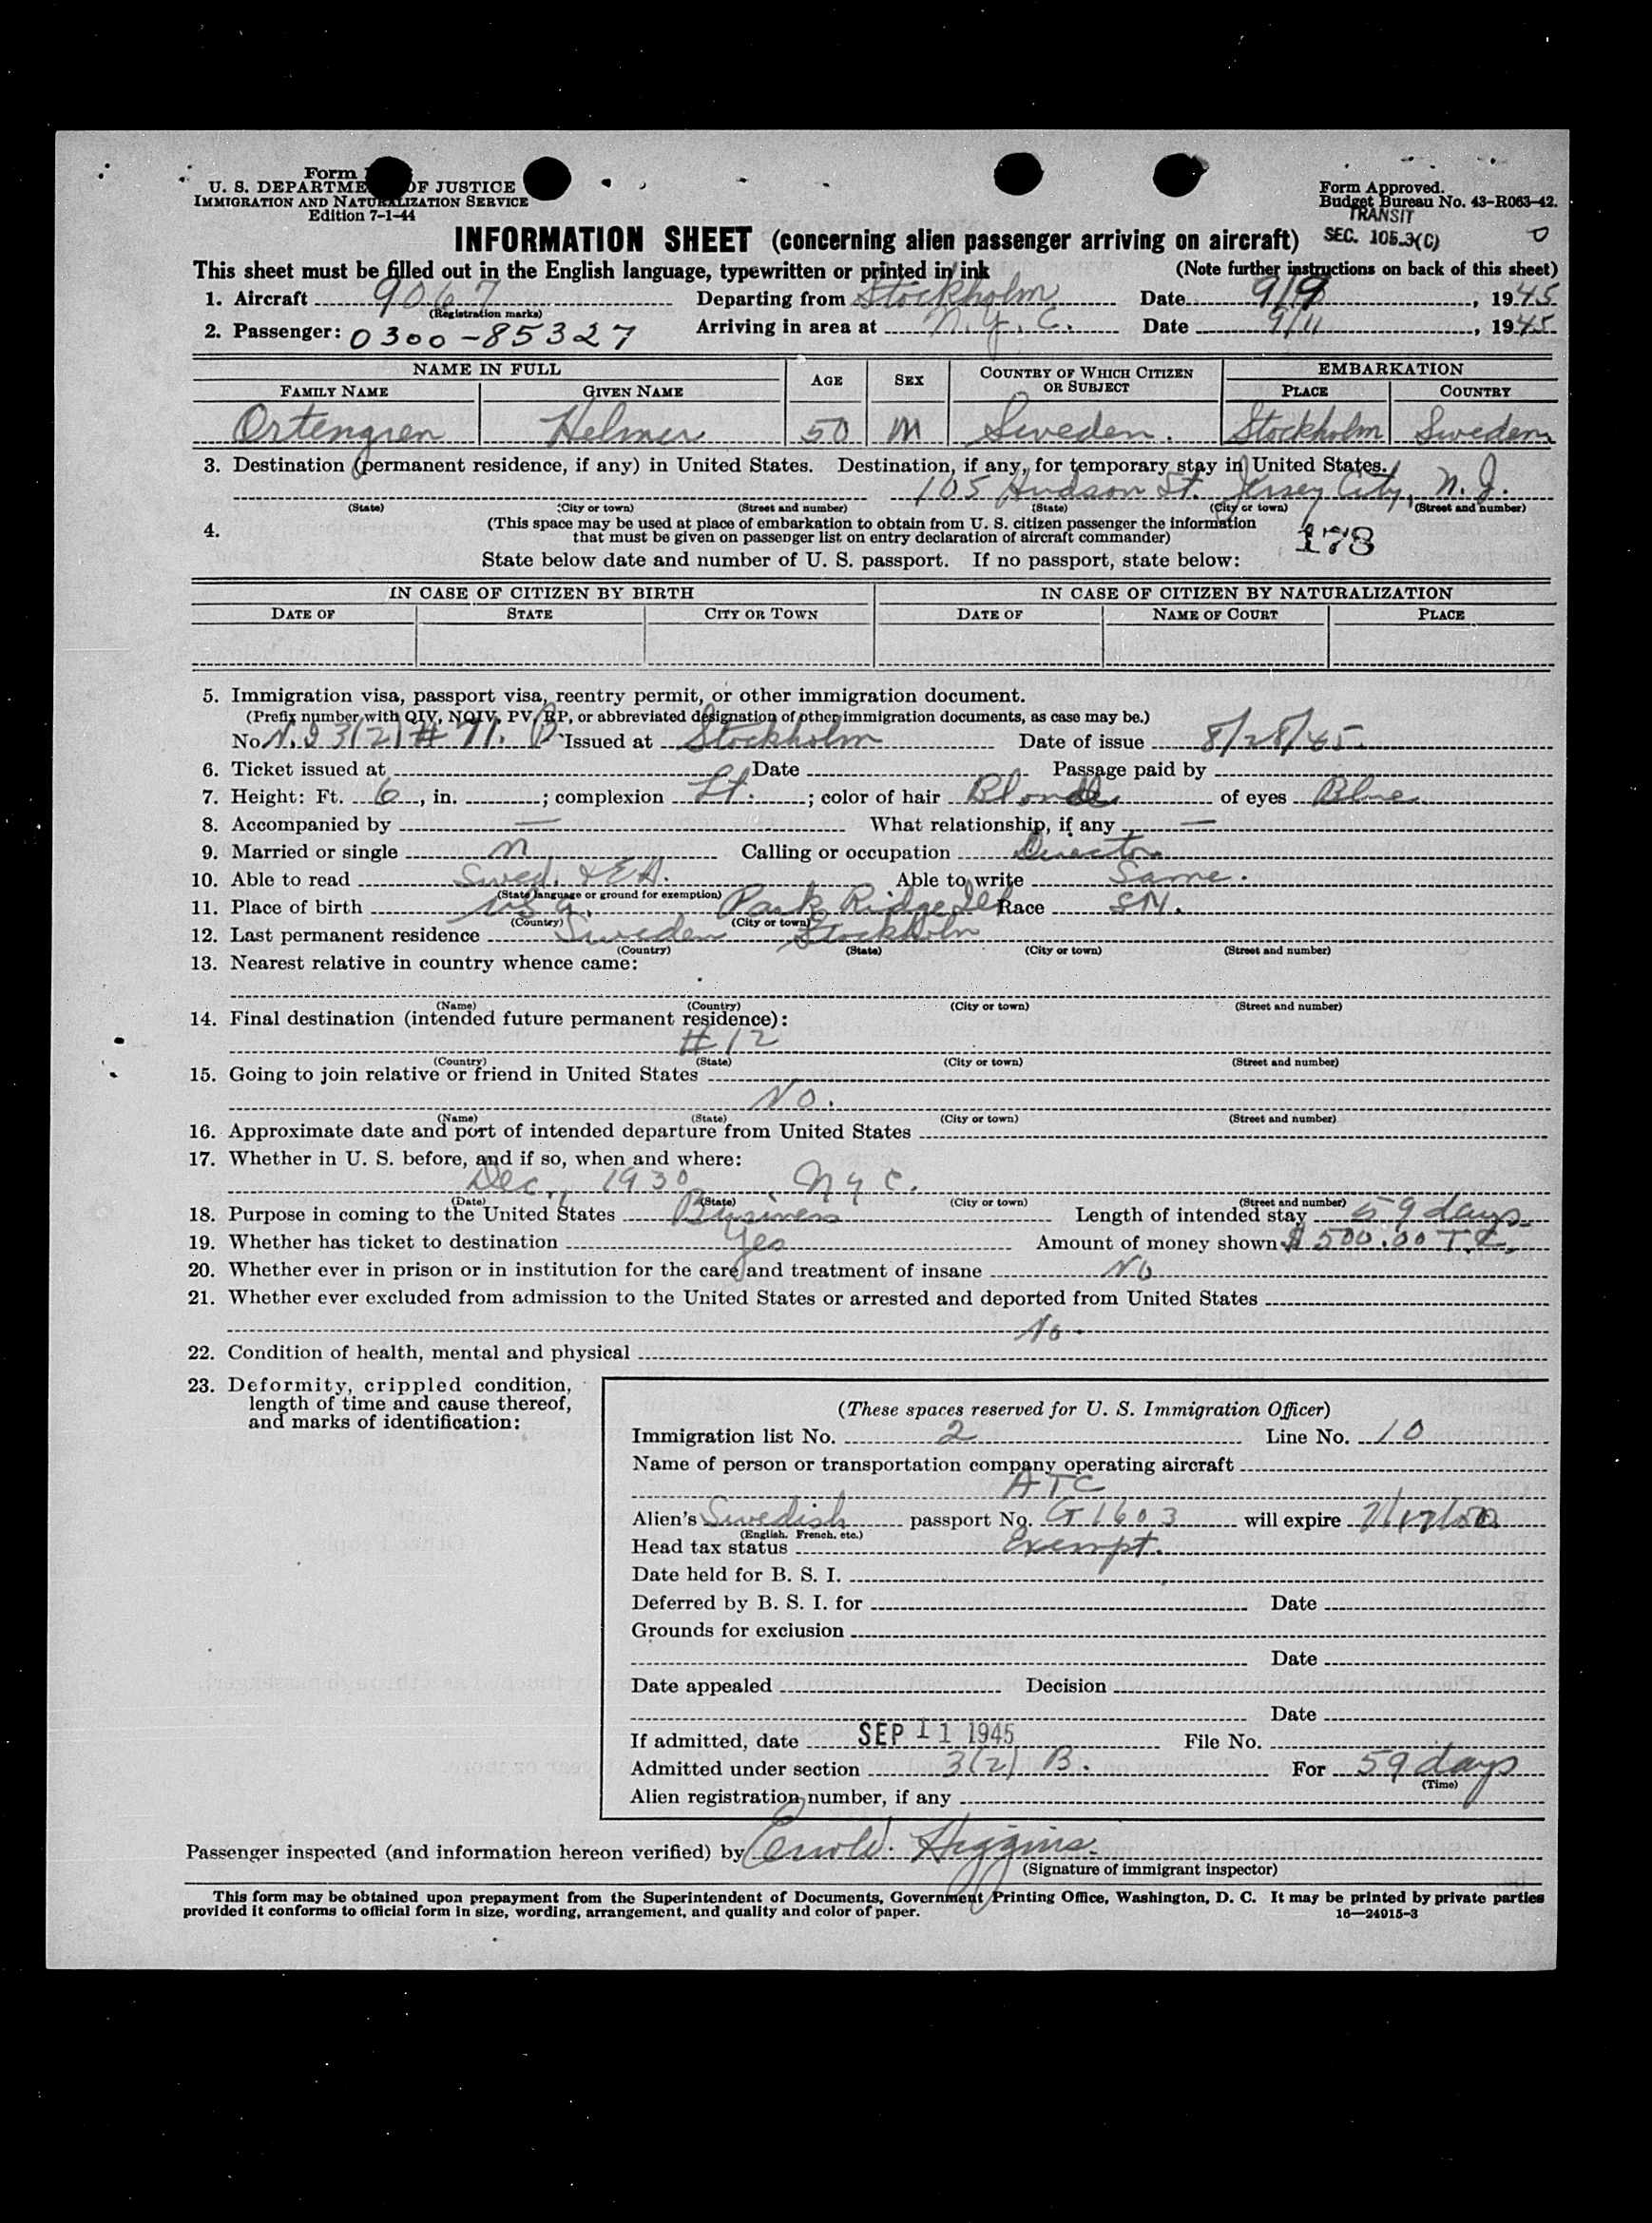 Form
U. S. DEPARTMENT OF JUSTICE
IMMIGRATION AND NATURALIZATION SERVICE
Edition 7-1-44
Form Approved.
Budget Bureau No. 43-R063-42.
TRANSIT
SEC. 105.3(C)
INFORMATION SHEET (concerning alien passenger arriving on aircraft)
This sheet must be filled out in the English language, typewritten or printed in ink (Note further instructions on back of this sheet)
1. Aircraft 9067 Departing from Stockholm Date 9/9, 1945
(Registration marks)
2. Passenger: 0300-85327 Arriving in area at N.Y.C. Date 9/11, 1945
NAME IN FULL AGE SEX COUNTRY OF WHICH CITIZEN OR SUBJECT EMBARKATION
FAMILY NAME GIVEN NAME PLACE COUNTRY
Ortengren Helmer 50 M Sweden. Stockholm Sweden
3. Destination (permanent residence, if any) in United States. Destination, if any, for temporary stay in United States.
105 Hudson St. Jersey City, N.J.
(State) (City or town) (Street and number) (State) (City or town) (Street and number)
4. (This space may be used at place of embarkation to obtain from U. S. citizen passenger the information
that must be given on passenger list on entry declaration of aircraft commander)
178
State below date and number of U. S. passport. If no passport, state below:
IN CASE OF CITIZEN BY BIRTH IN CASE OF CITIZEN BY NATURALIZATION
DATE OF STATE CITY OR TOWN DATE OF NAME OF COURT PLACE
5. Immigration visa, passport visa, reentry permit, or other immigration document.
(Prefix number with QIV, NQIV, PV, RP, or abbreviated designation of other immigration documents, as case may be.)
No. 3(2) # 71. Issued at Stockholm Date of issue 8/28/45.
6. Ticket issued at Date Passage paid by
7. Height: Ft. 6, in. ; complexion Lt. ; color of hair Blonde of eyes Blue
8. Accompanied by — What relationship, if any —
9. Married or single M Calling or occupation Director
10. Able to read Swed. Able to write Same.
(State language or ground for exemption)
11. Place of birth USA. Park Ridge Ill Race SN.
(Country) (City or town)
12. Last permanent residence Sweden Stockholm
(Country) (State) (City or town) (Street and number)
13. Nearest relative in country whence came:
(Name) (Country) (City or town) (Street and number)
14. Final destination (intended future permanent residence):
#12
(Country) (State) (City or town) (Street and number)
15. Going to join relative or friend in United States
No.
(Name) (State) (City or town) (Street and number)
16. Approximate date and port of intended departure from United States
17. Whether in U. S. before, and if so, when and where:
Dec., 1930 NYC.
(Date) (State) (City or town) (Street and number)
18. Purpose in coming to the United States Business Length of intended stay 59 days
19. Whether has ticket to destination Yes Amount of money shown $500.00 T.C.
20. Whether ever in prison or in institution for the care and treatment of insane No
21. Whether ever excluded from admission to the United States or arrested and deported from United States
No.
22. Condition of health, mental and physical
23. Deformity, crippled condition,
length of time and cause thereof,
and marks of identification:
(These spaces reserved for U. S. Immigration Officer)
Immigration list No. 2 Line No. 10
Name of person or transportation company operating aircraft
ATC
Alien's Swedish passport No. G1603 will expire 7/17/50
(English, French, etc.)
Head tax status Exempt.
Date held for B. S. I.
Deferred by B. S. I. for Date
Grounds for exclusion
Date
Date appealed Decision
Date
If admitted, date SEP 11 1945 File No.
Admitted under section 3(2) B. For 59 days
(Time)
Alien registration number, if any
Passenger inspected (and information hereon verified) by Higgins.
(Signature of immigrant inspector)
This form may be obtained upon prepayment from the Superintendent of Documents, Government Printing Office, Washington, D. C. It may be printed by private parties
provided it conforms to official form in size, wording, arrangement, and quality and color of paper. 16—24915-3